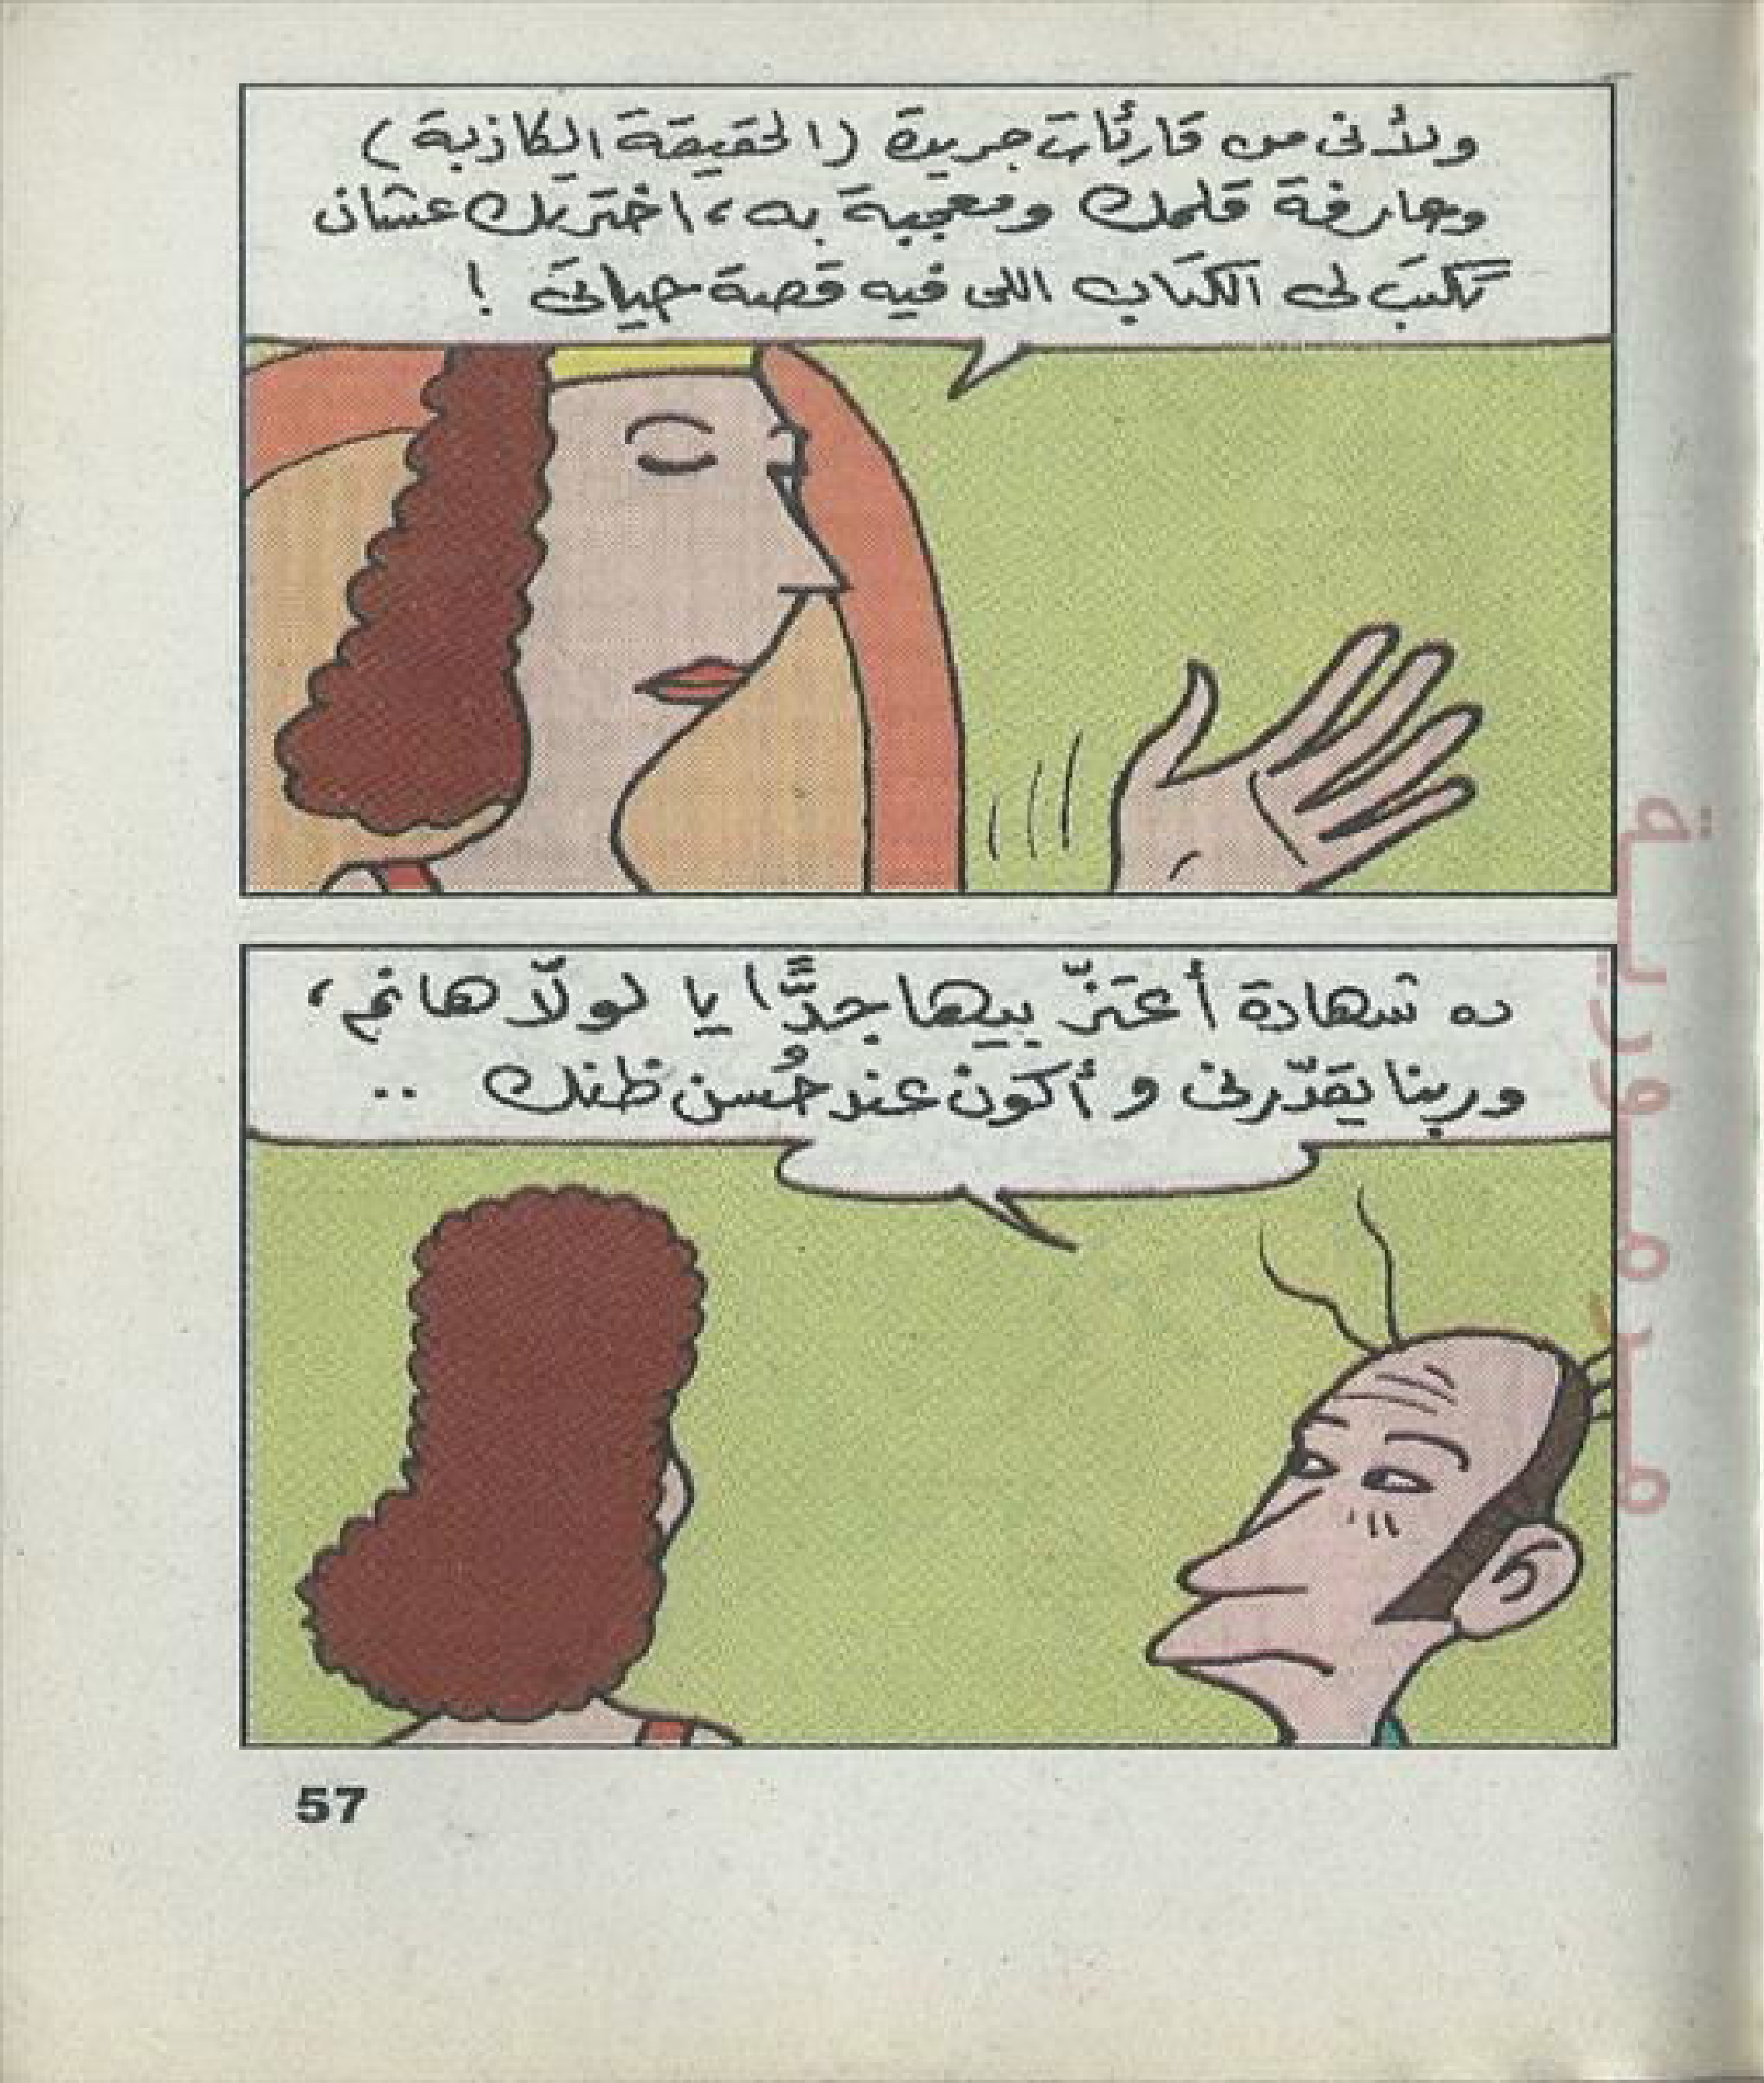 ولأنى من قارئات جريدة (الحقيقة الكاذبة)
وعارفة قلمك ومعجبة به، اختريتك عشان
تكتب لى الكتاب اللى فيه قصة حياتى !
ده شهادة أعتزّ بيها جدًّا يا لولّا هانم،
وربنا يقدّرنى وأكون عند حُسن ظنك ..
57